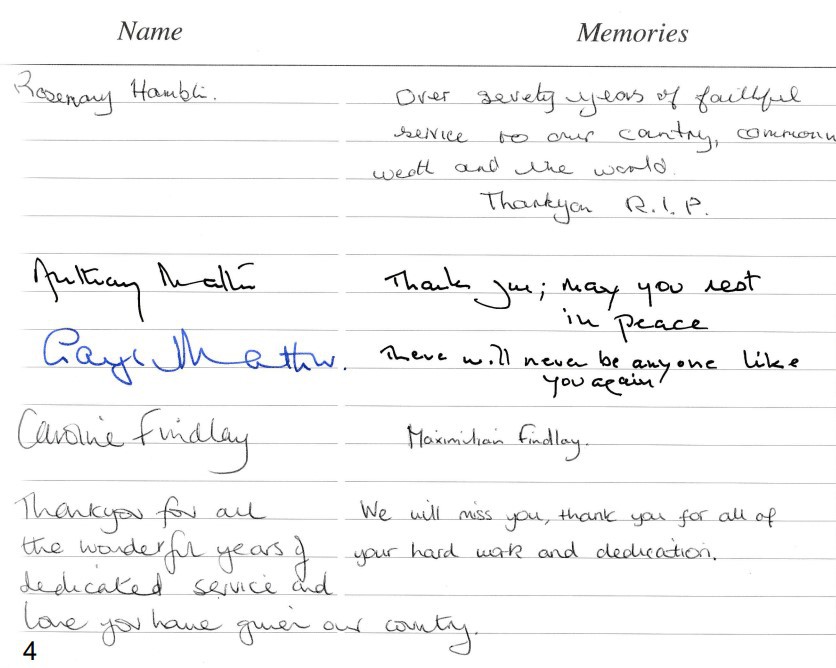 Name Memories
Rosemary Hamblin. Over seventy years of faithful
service to our country, common
wealth and the world.
Thankyou R.I.P.
Anthony Thank you; may you rest
in peace
there will never be anyone like
you again
Caroline Findlay Maximilian Findlay.
Thankyou for all We will miss you, thank you for all of
the wonderful years of your hard work and dedication.
dedicated service and
love you have given our country.
4